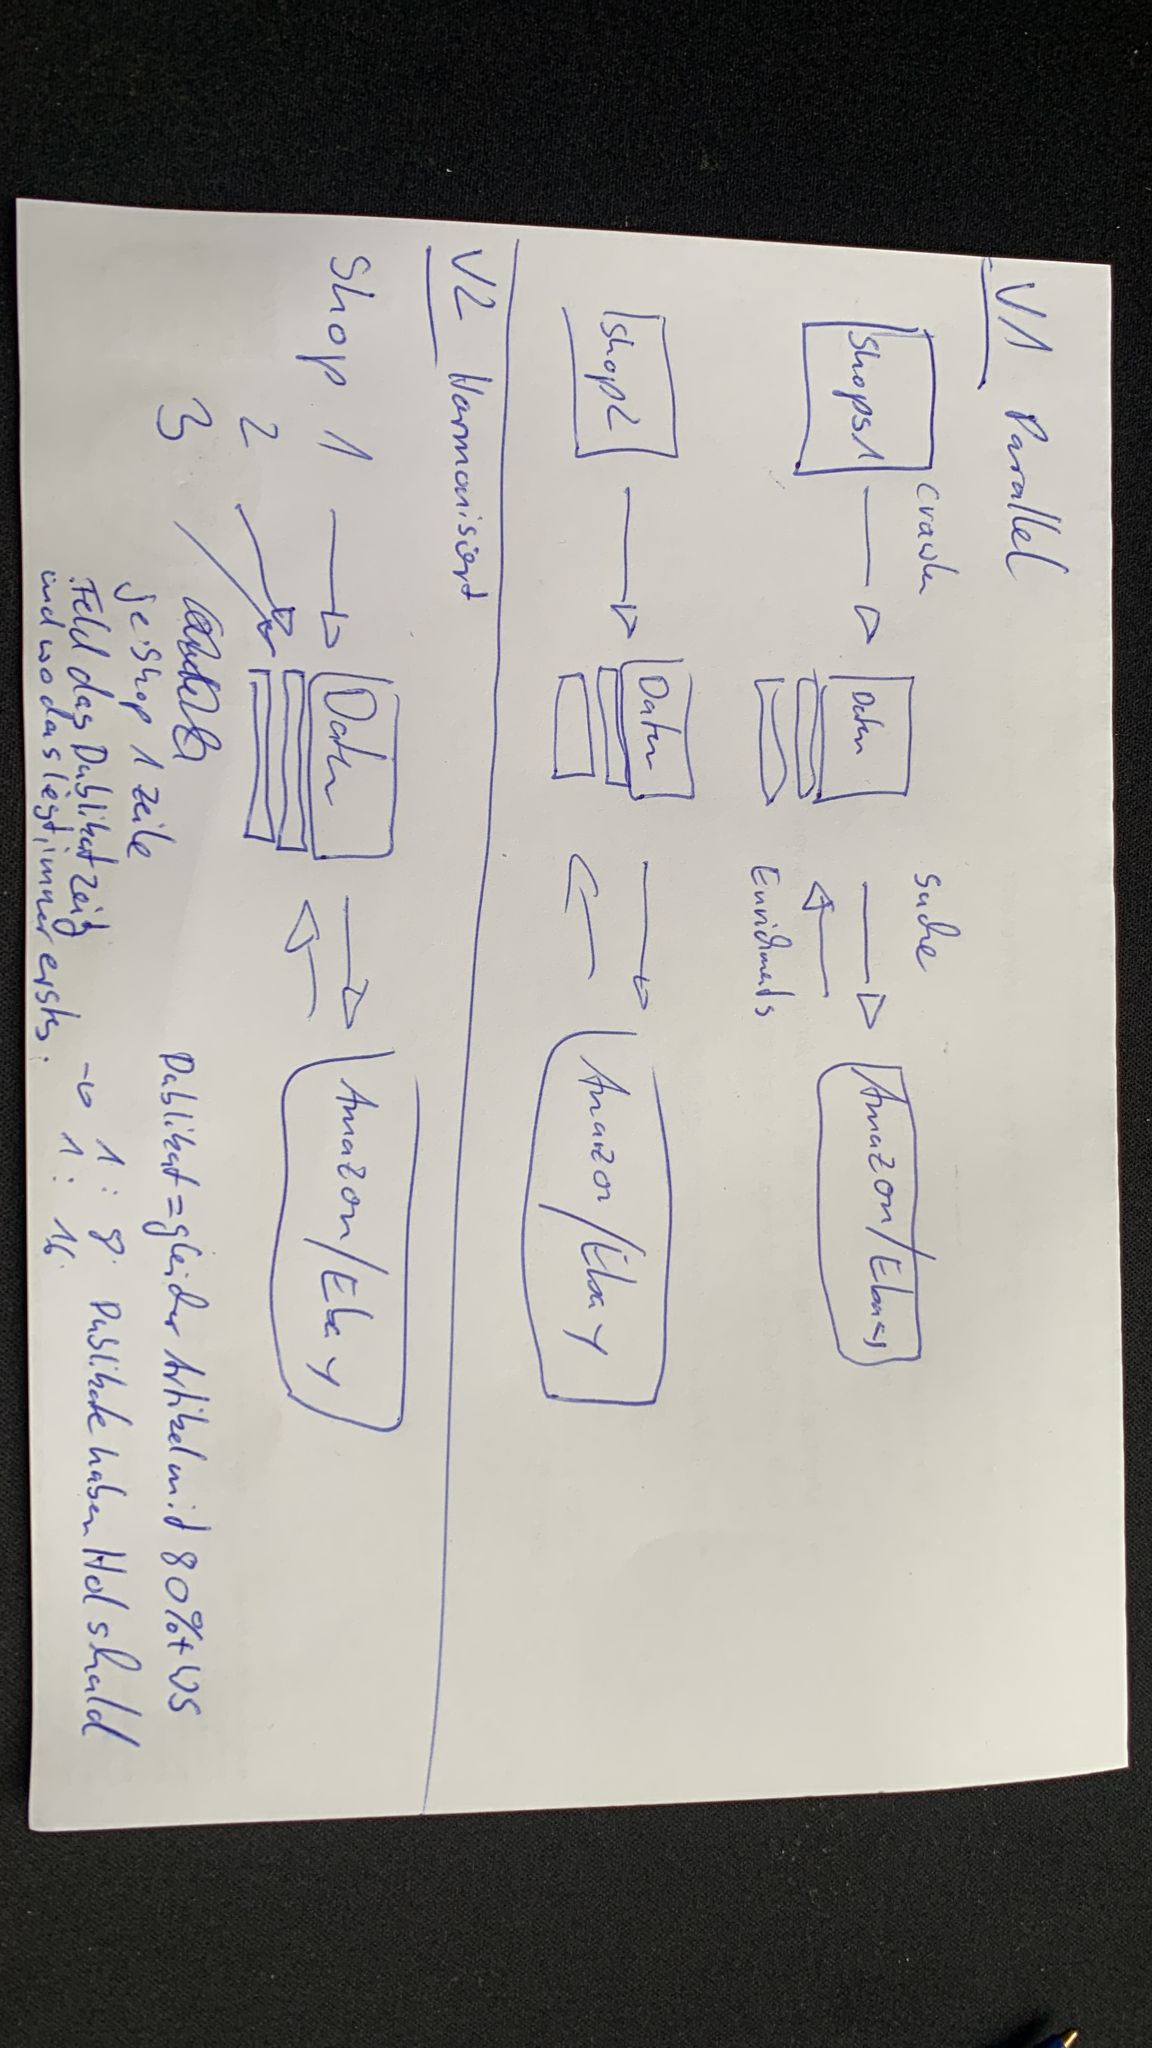 V1 Parallel
crawler
Suche
Shops1
Daten
Amazon/Ebay
Enrichments
Shop2
Daten
Amazon/Ebay
V2 Harmonisiert
Shop 1
Daten
Amazon/Ebay
2
3
je Shop 1 Zeile
Feld das Dublikat zeigt
und wo das liegt, immer erstes.
Dublikat = gleicher Artikel mit 80%+ WS
→ 1 : 8. Dublikate haben
1 : 16.